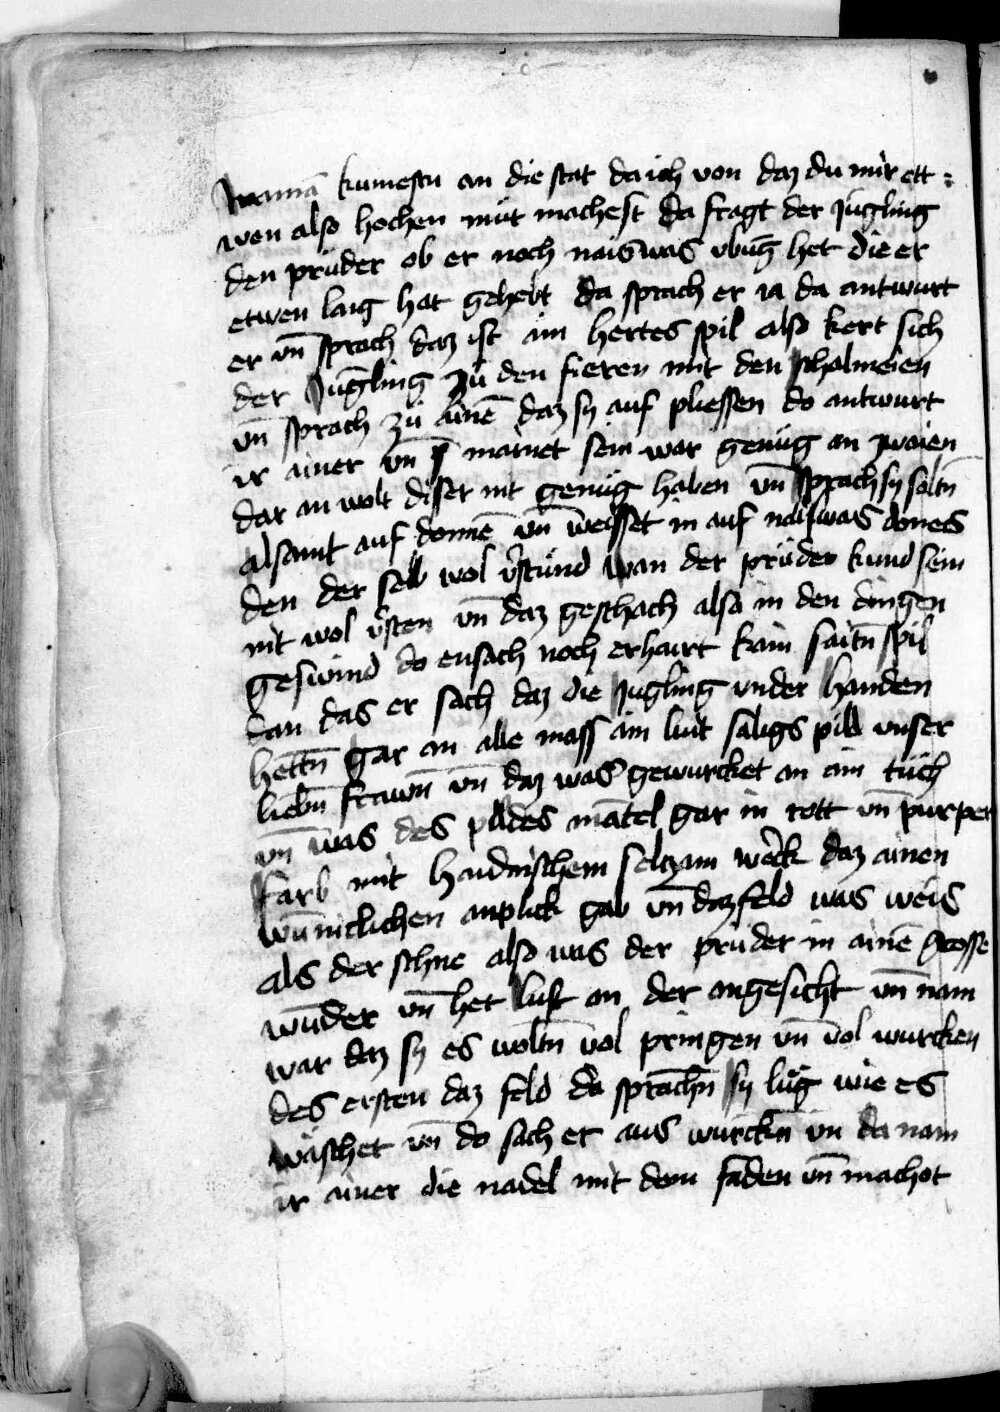 kumestu an die stat da ich von daz du mir ett :
wen also hochen můt machest da fragt der Jügling
den průder ob er noch naiswas vbūg het die er
etwen lang hat gehebt da sprach er ia da antwurt
er vn̄ sprach daz ist aim hertes spil also kert sich
der Jūgling zů den fieren mit den schalmeien
vn̄ sprach zů ainē daz sy auf pliessen do antwurt
ir ainer vn̄ mainet sein war genůg an zwaien
dar an wolt diser nit genůg haben vn̄ sprach sy soltn̄
alsamt auf donnē vn̄ weisset in auf naiswas dones
den der selb wol v̓stůnd wan der průder kund sein
nit wol v̓sten vn̄ daz geschach also in den dingen
geswind do ensach noch erhart kain saitn̄ spil
dan das er sach daz die Jügling vnder handen
hettn̄ gar an alle mass ain lut saligs pild vnser
liebn̄ frawn̄ vn̄ daz was gewurcket an aim tůch
vn̄ was des pildes mātel gar in rott vn̄ purper
farb mit haidnischem seltzam werck daz ainen
wūniclichen anplick gab vn̄ daz feld was weis
als der schne also was der průder in ainē grosse
wunder vn̄ het lust an der angesicht vn̄ nam
war daz sy es woltn̄ vol pringen vn̄ vol wurcken
des ersten daz feld da sprachn̄ sy lůg wie es
waschet vn̄ do sach er aus wurckn̄ vn̄ da nam
ir ainer die nadel mit dem faden vn̄ machot